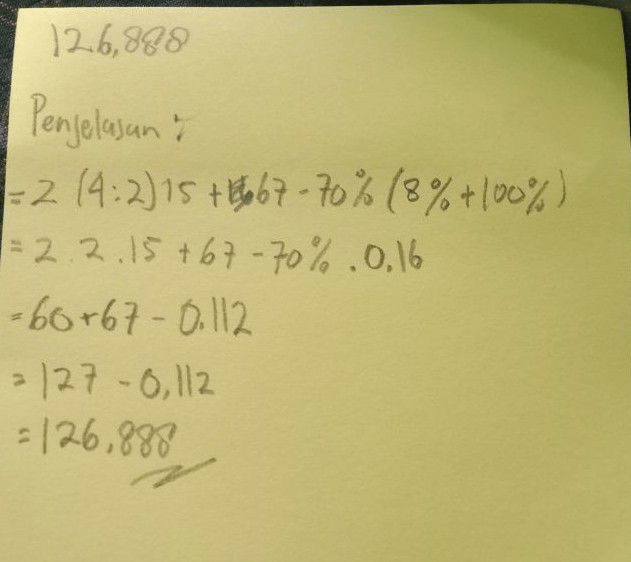 126,888
Penjelasan :
= 2 (4:2) 15 + 67 - 70% (8% + 100%)
= 2 . 2 . 15 + 67 - 70% . 0.16
= 60 + 67 - 0.112
= 127 - 0,112
= 126,888